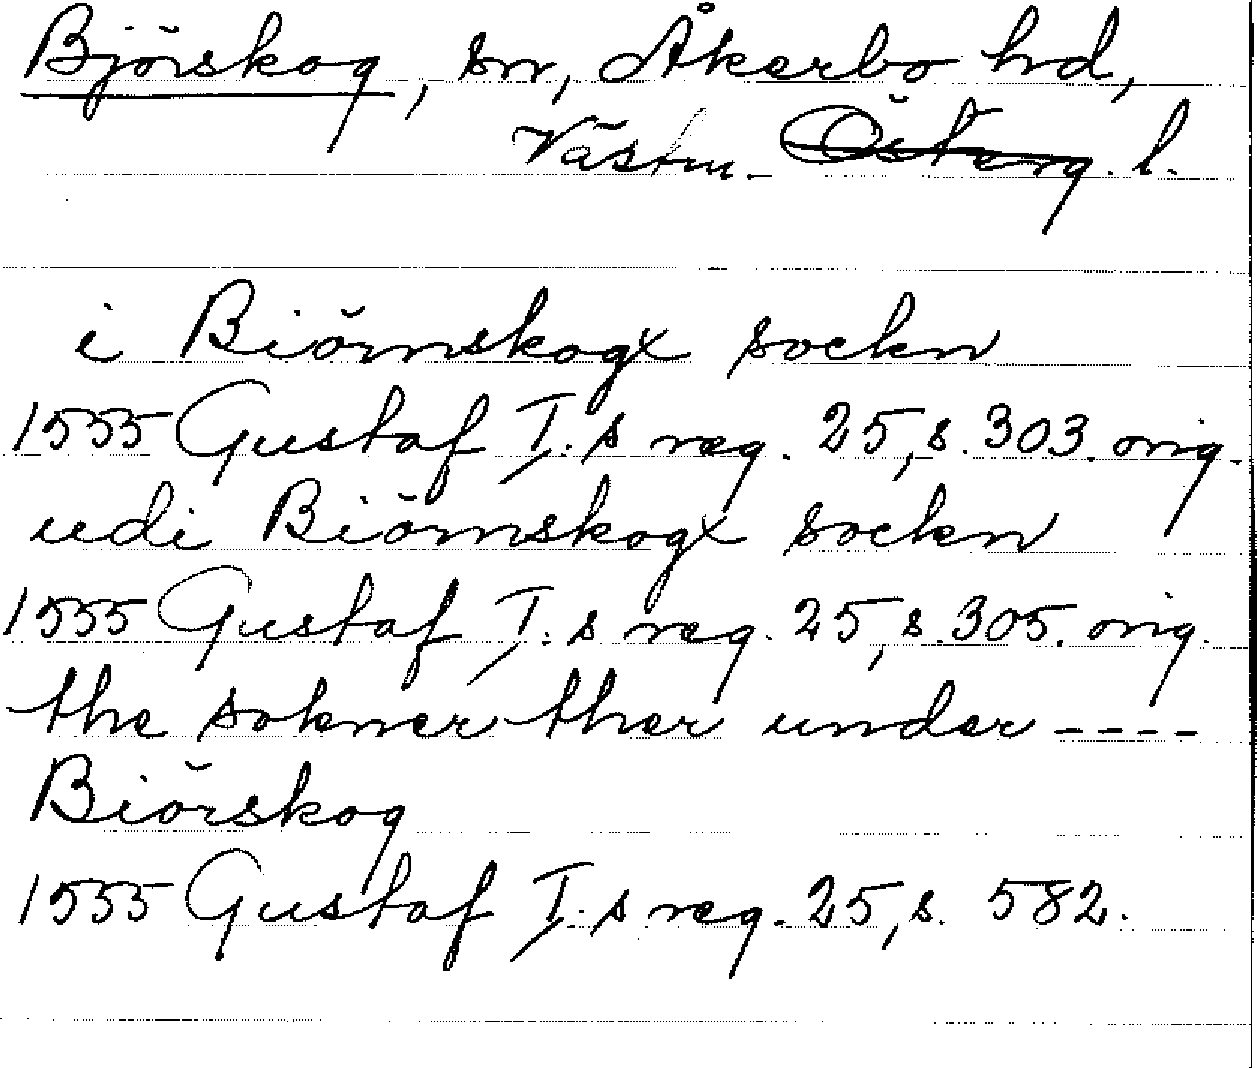 Björskog, sn, Åkerbo hd,
Västm. Österg. l.
i Biörnskogx sockn
1555 Gustaf I:s reg. 25, s. 303. orig.
udi Biörnskogx sockn
1555 Gustaf I:s reg. 25, s. 305. orig.
the sokner ther under ----
Biörskog
1555 Gustaf I:s reg. 25, s. 582.